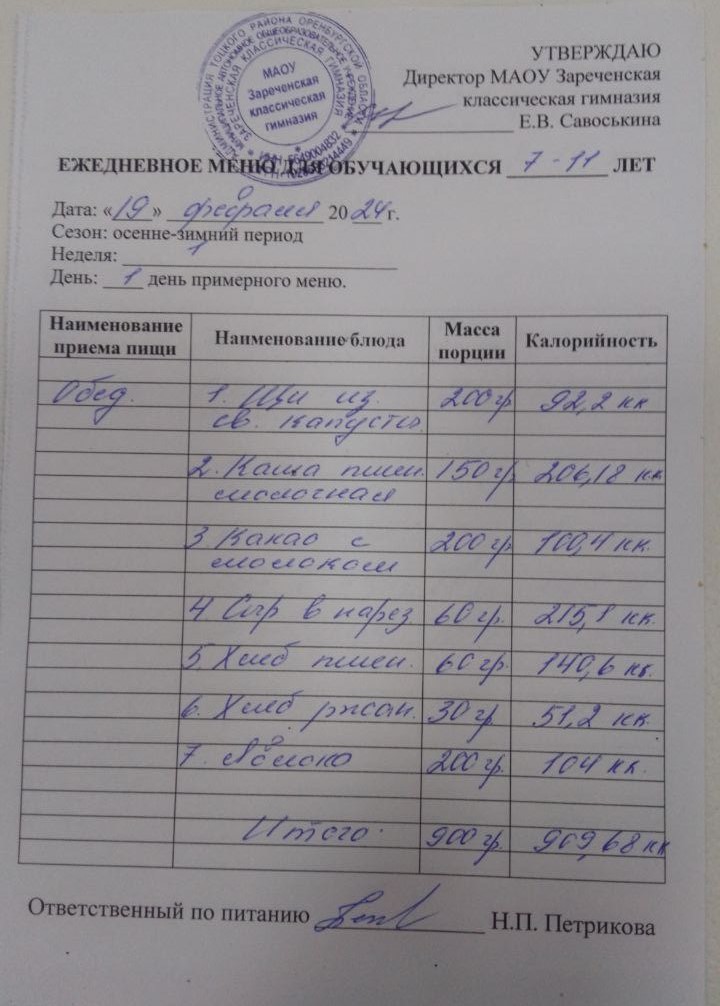 УТВЕРЖДАЮ
Директор МАОУ Зареченская
классическая гимназия
Е.В. Савоськина
МАОУ
Зареченская
классическая
гимназия
ЕЖЕДНЕВНОЕ МЕНЮ ДЛЯ ОБУЧАЮЩИХСЯ 7-11 ЛЕТ
Дата: «19» февраля 2024 г.
Сезон: осенне-зимний период
Неделя: 1
День: 1 день примерного меню.
Наименование приема пищи Наименование блюда Масса порции Калорийность
Обед. 1. Щи из 200 гр 92,2 кк
св. капусты.
2. Каша пшен. 150 гр. 206,18 кк
молочная
3. Какао с 200 гр 100,4 кк.
молоком
4 Сыр в нарез 60 гр. 215,1 кк.
5. Хлеб пшен. 60 гр. 140,6 кк.
6. Хлеб ржан. 30 гр. 51,2 кк.
7. Яблоко 200 гр. 104 кк.
Итого. 900 гр. 909,68 кк
Ответственный по питанию Н.П. Петрикова